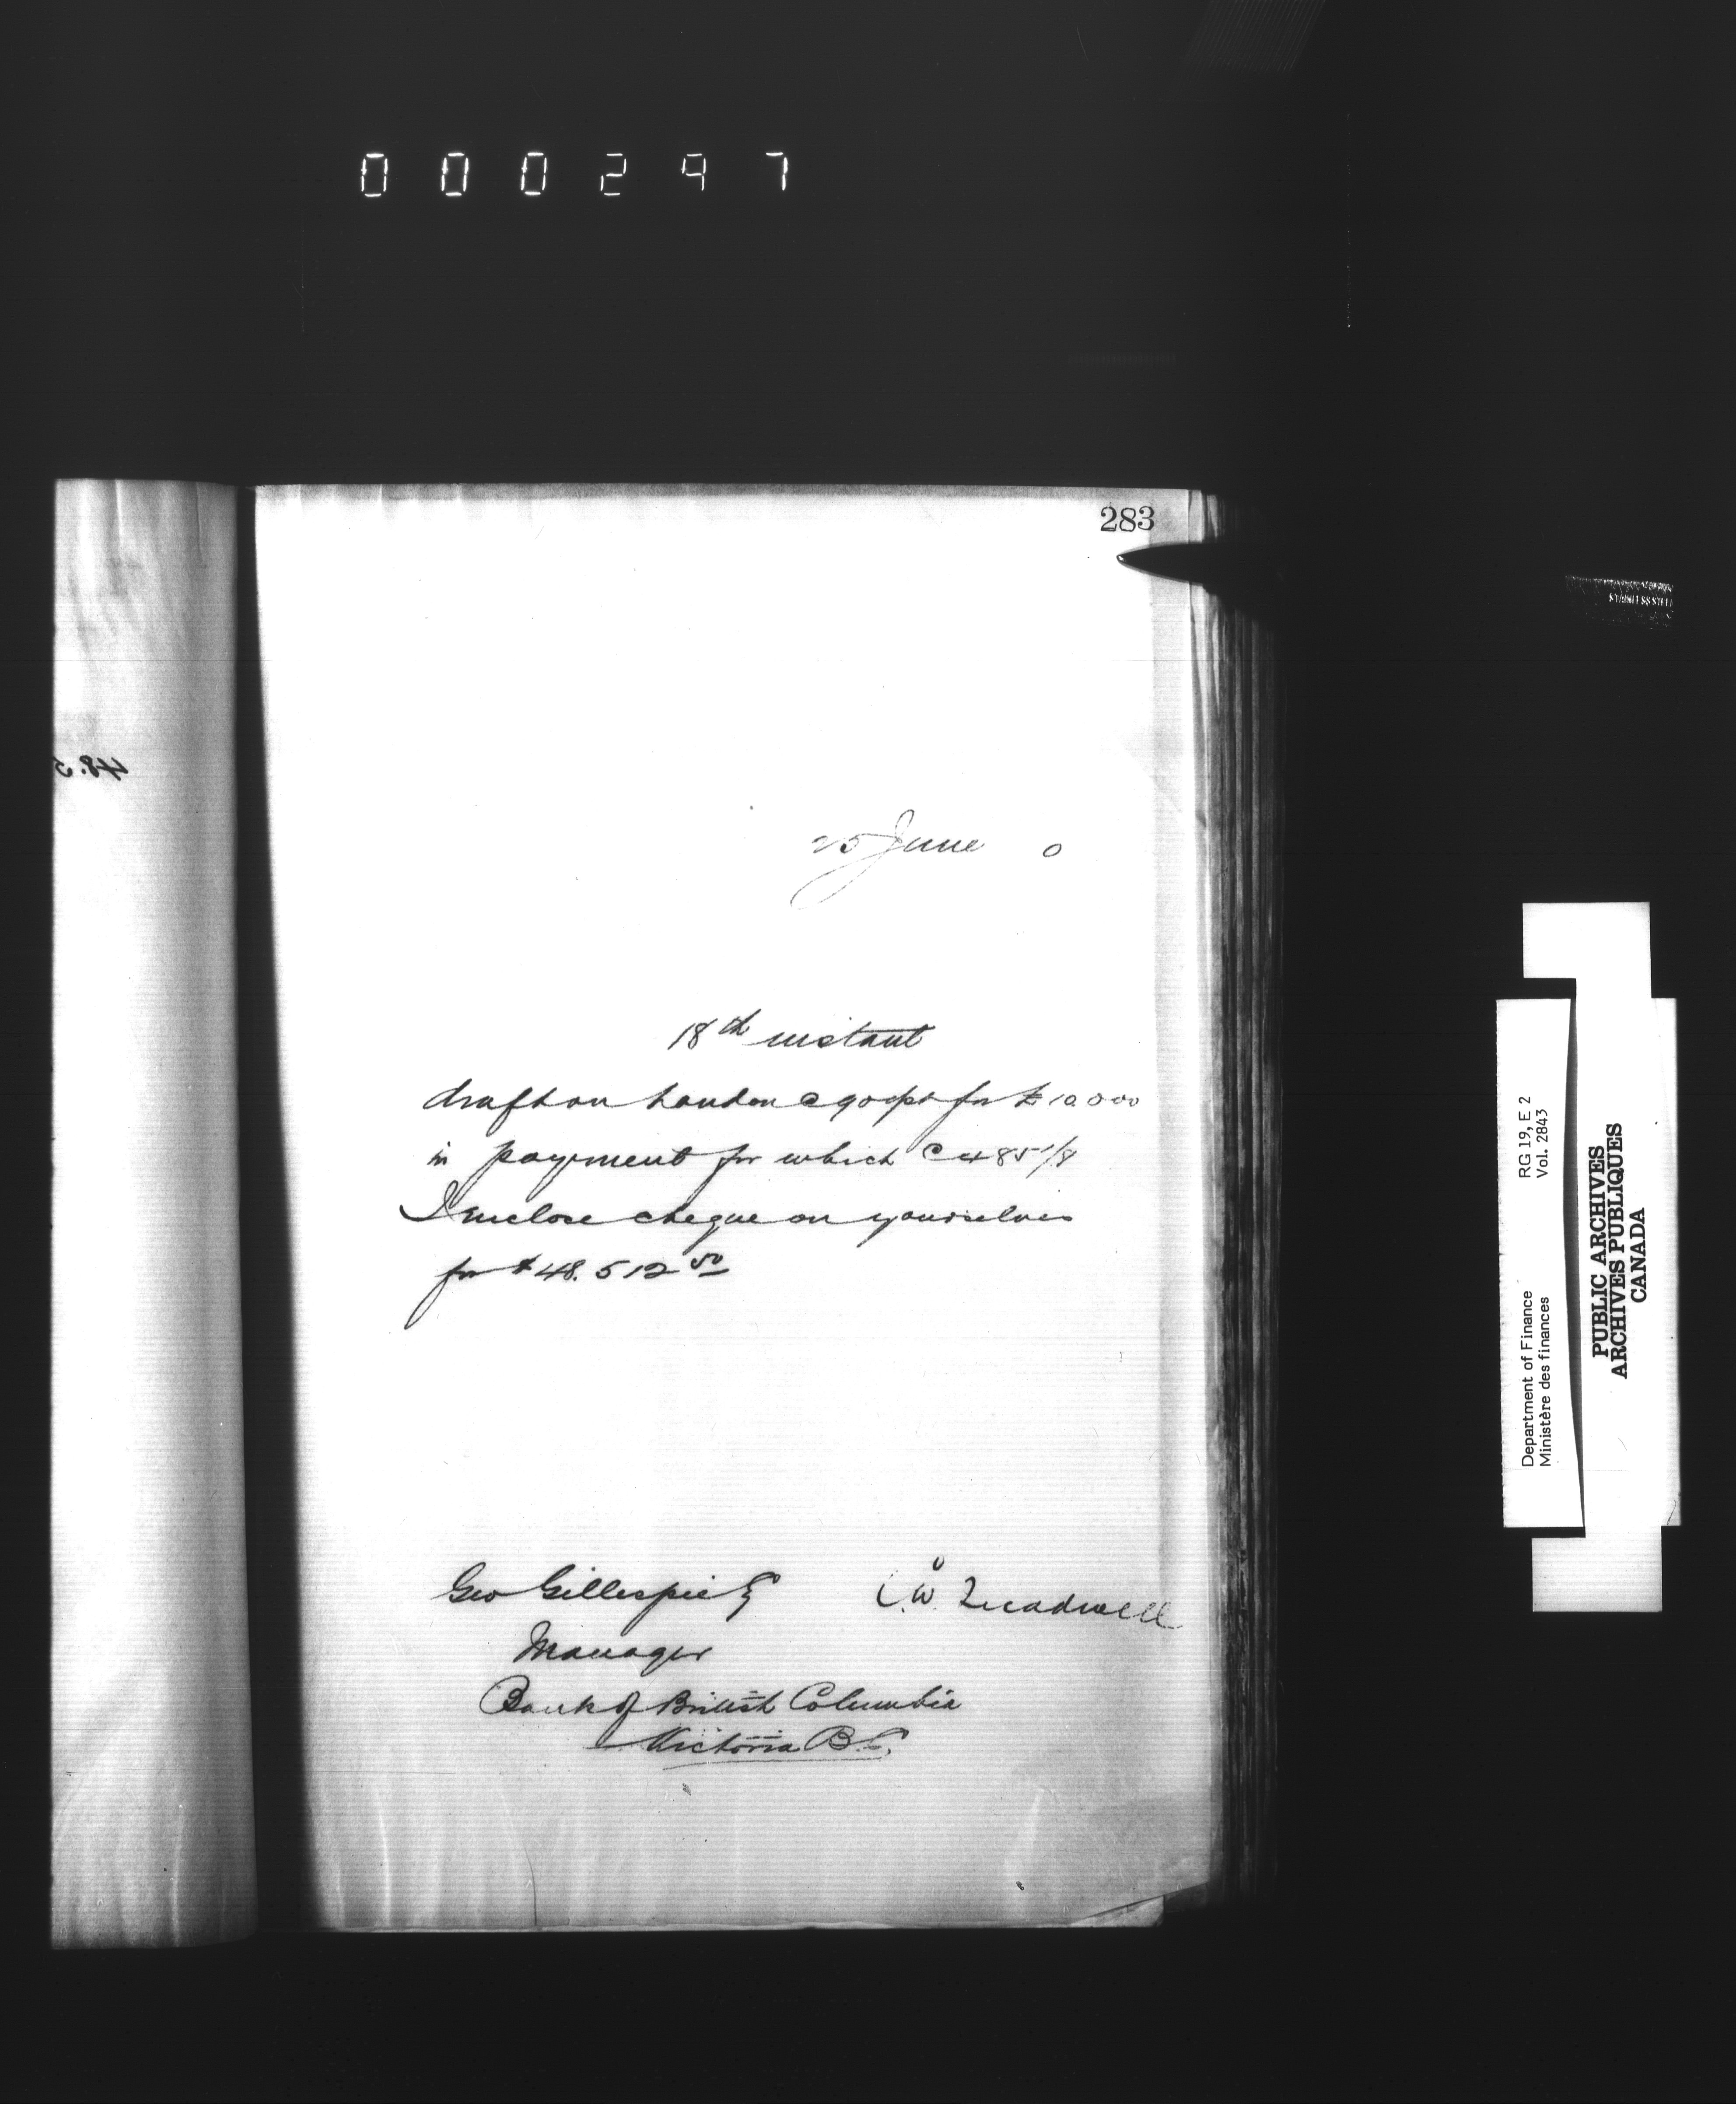 000297
283
48.5
25 June 0
18th instant
draft on London @ 90 dys for £10000
in payment for which @ 485 1/8
I enclose cheque on yourselves
for $48.512 50
Geo Gillespie Esq
W. Treadwell
Manager
Bank of British Columbia
Victoria B.C.
Department of Finance
Ministère des finances
RG 19, E 2
Vol. 2843
PUBLIC ARCHIVES
ARCHIVES PUBLIQUES
CANADA